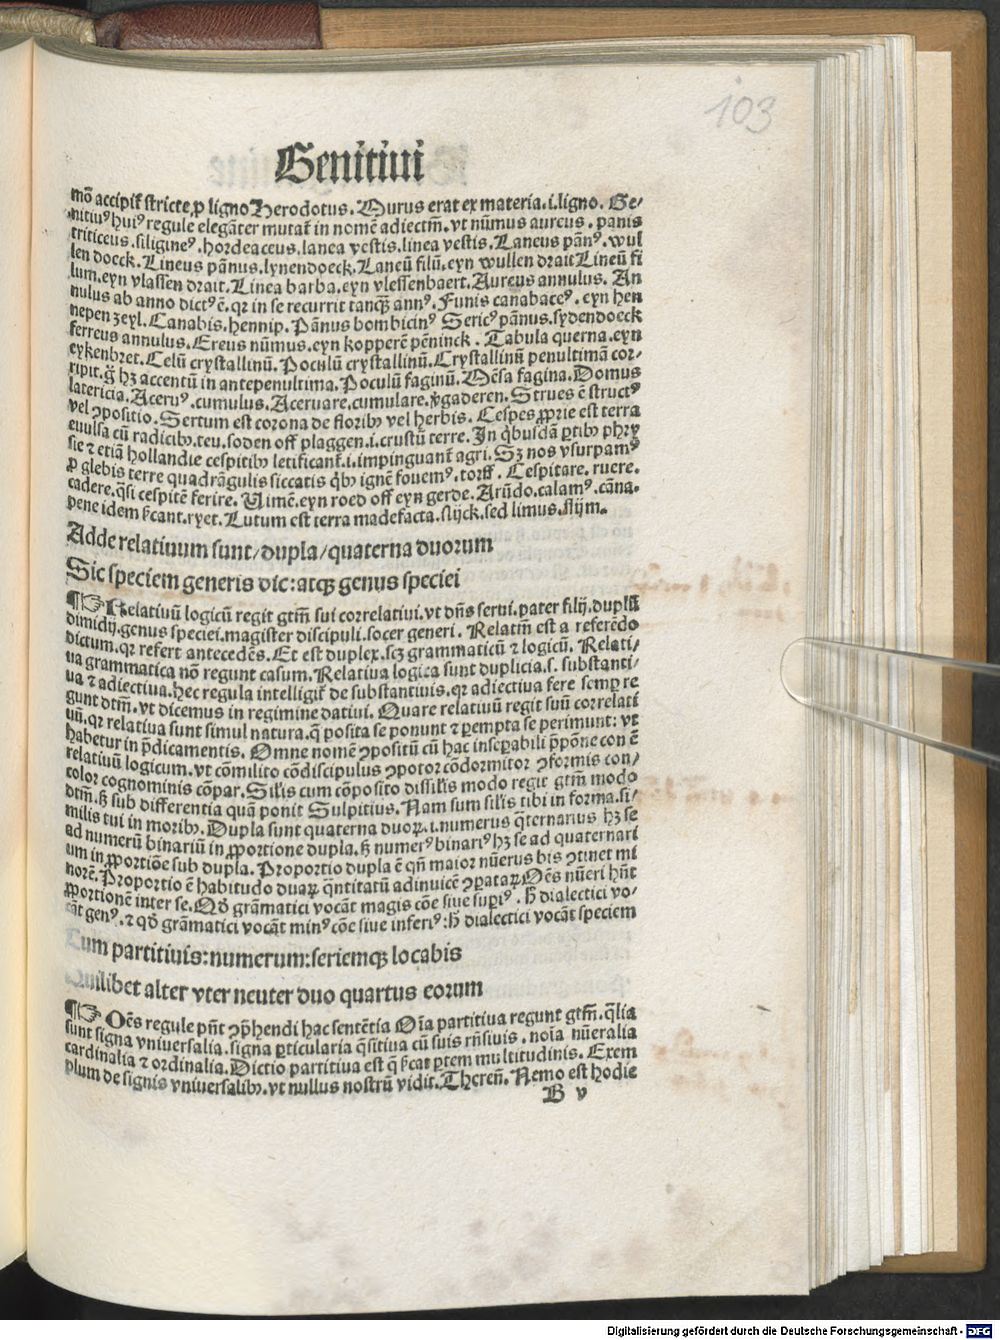 103
Genitiui
mō accipit᷑ stricte ꝓ ligno Herodotus. Murus erat ex materia.i.ligno. Ge/
nitiuꝰ huiꝰ regule elegāter mutat᷑ in nomē adiectm̄. vt nūmus aureus. panis
triticeus. siligineꝰ. hordeaceus. lanea vestis. linea vestis. Laneus pānꝰ. wul
len doeck. Lineus pānus. lynendoeck. Laneū filū. eyn wullen drait Lineū fi
lum. eyn vlassen drait. Linea barba. eyn vlessenbaert. Aureus annulus. An
nulus ab anno dictꝰ ē. qꝛ in se recurrit tanqͣꝫ annꝰ. Funis canabaceꝰ. eyn hen
nepen zeyl. Canabis. hennip. Pānus bombicinꝰ Sericꝰ pānus. sydendoeck
ferreus annulus. Ereus nūmus. eyn kopperē pēninck. Tabula querna. eyn
eykenbret. Celū crystallinū. Poculū crystallinū. Crystallinū penultimā cor/
ripit. gͦ hꝫ accentū in antepenultima. Poculū faginū. Mēsa fagina. Domus
latericia. Aceruꝰ. cumulus. Aceruare. cumulare. vgaderen. Strues ē structꝰ
vel ꝯpositio. Sertum est corona de floribꝰ vel herbis. Cespes ꝓprie est terra
euulsa cū radicibꝰ. teu. soden off plaggen.i.crustū terre. In qͥbusdā ꝑtibꝰ phry
sie ⁊ etiā hollandie cespitibꝰ letificant᷑.i.impinguant᷑ agri. Sꝫ nos vsurpamꝰ
ꝓ glebis terre quadrāgulis siccatis qͥbꝰ ignē fouemꝰ. torff. Cespitare. ruere.
cadere. qͣsi cespitē ferire. Vimē. eyn roed off eyn gerde. Arūdo. calamꝰ. cāna.
pene idem sͨcant. ryet. Lutum est terra madefacta. slijck. sed limus. slijm.
Adde relatiuum sunt/dupla/quaterna duorum
Sic speciem generis dic:atqꝫ genus speciei
¶☞ Relatiuū logicū regit gtm̄ sui correlatiui. vt dn̄s serui. pater filij. duplū
dimidij. genus speciei. magister discipuli. socer generi. Relatm̄ est a referēdo
dictum. qꝛ refert antecedēs. Et est duplex. scꝫ grammaticū ⁊ logicū. Relati/
ua grammatica nō regunt casum. Relatiua logica sunt duplicia.s. substanti/
ua ⁊ adiectiua. hec regula intelligit᷑ de substantiuis. qꝛ adiectiua fere semꝑ re
gunt dtm̄. vt dicemus in regimine datiui. Quare relatiuū regit suū correlati
uū. qꝛ relatiua sunt simul natura. qͣ posita se ponunt ⁊ ꝑempta se perimunt: vt
habetur in p̄dicamentis. Omne nomē ꝯpositū cū hac inseꝑabili p̄pōne con ē
relatiuū logicum. vt cōmilito cōdiscipulus ꝯpotor cōdormitor ꝯformis con/
color cognominis cōpar. Silis cum cōposito dissilis modo regit gtm̄ modo
dtm̄. sꝫ sub differentia quā ponit Sulpitius. Nam sum silis tibi in forma. si/
milis tui in moribꝰ. Dupla sunt quaterna duoꝝ.i.numerus qͣternarius hꝫ se
ad numerū binariū in ꝓportione dupla. sꝫ numerꝰ binariꝰ hꝫ se ad quaternari
um in ꝓportiōe sub dupla. Proportio dupla ē qn̄ maior nūerus bis ꝯtinet mi
norē. Proportio ē habitudo duaꝝ qͣntitatū adinuicē ꝯparataꝝ Oēs nūeri hn̄t
ꝓportionē inter se. Qd̄ grāmatici vocāt magis cōe siue supiꝰ. hͦ dialectici vo/
cāt genꝰ. ⁊ qd̄ grāmatici vocāt minꝰ cōe siue inferiꝰ: hͦ dialectici vocāt speciem
Cum partitiuis:numerum:seriemqꝫ locabis
Quilibet alter vter neuter duo quartus eorum
¶☞ Oēs regule pn̄t ꝯp̄hendi hac sentētia Oīa partitiua regunt gtm̄. qͣlia
sunt signa vniuersalia. signa ꝑticularia qͣsitiua cū suis rn̄siuis. noīa nūeralia
cardinalia ⁊ ordinalia. Dictio partitiua est qͣ sͨcat ꝑtem multitudinis. Exem
plum de signis vniuersalibꝰ. vt nullus nostrū vidit. Theren̄. Nemo est hodie
B v
Digitalisierung gefördert durch die Deutsche Forschungsgemeinschaft - DFG